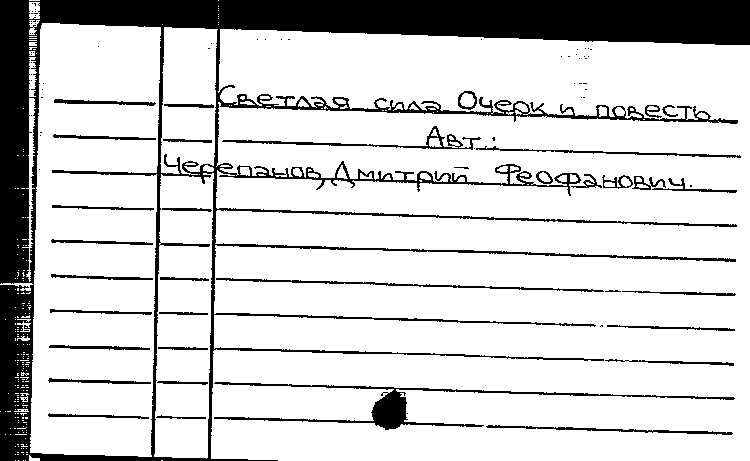 Светлая сила Очерк и повесть
Авт.:
Черепанов, Дмитрий Феофанович.